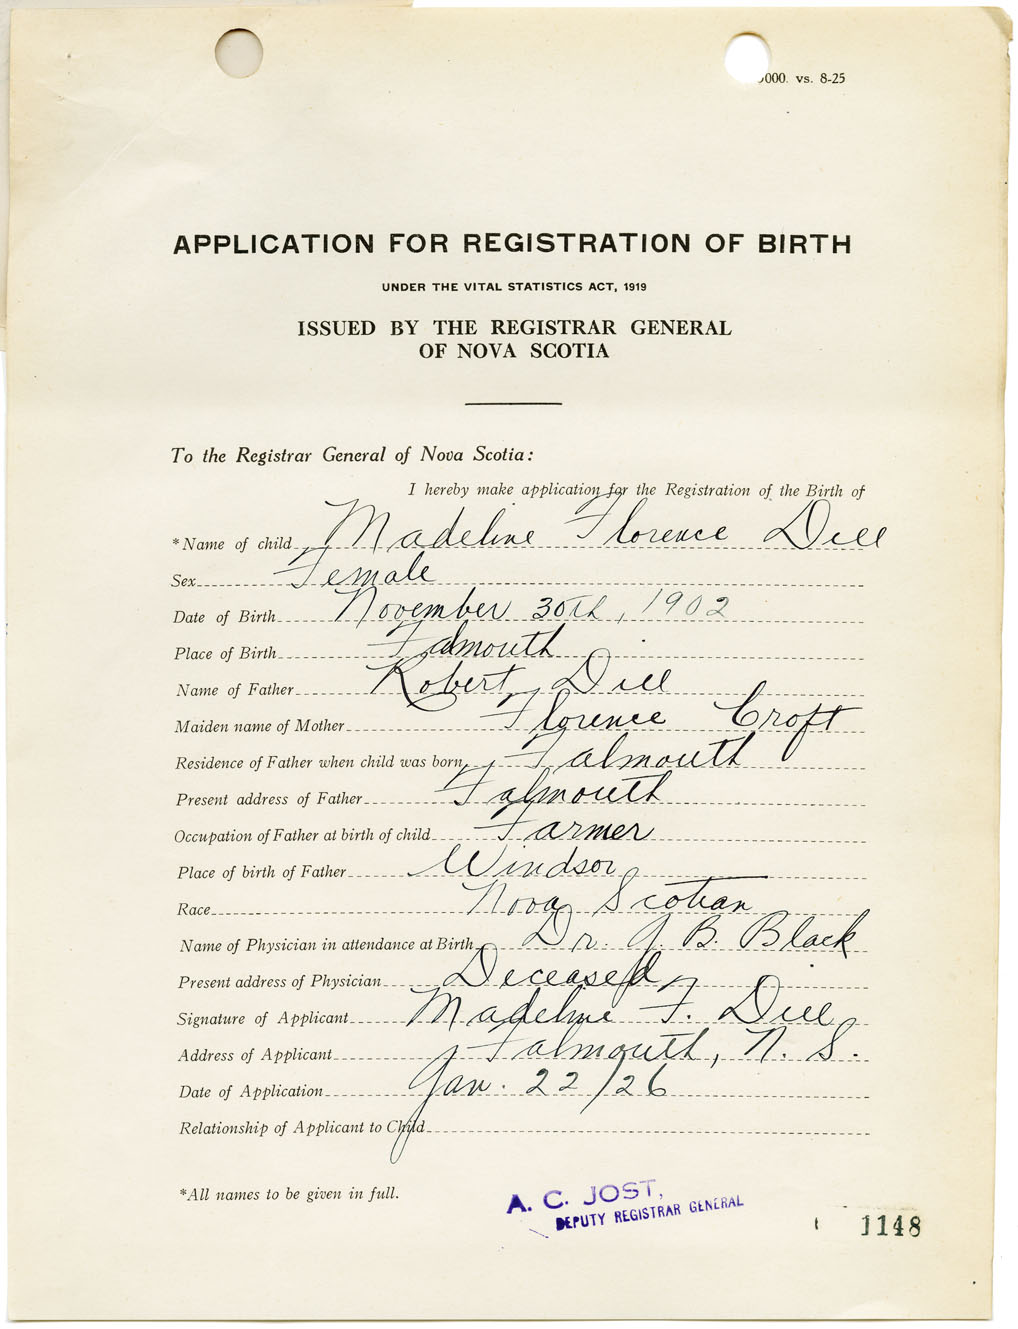 000. vs. 8-25
APPLICATION FOR REGISTRATION OF BIRTH
UNDER THE VITAL STATISTICS ACT, 1919
ISSUED BY THE REGISTRAR GENERAL
OF NOVA SCOTIA
To the Registrar General of Nova Scotia:
I hereby make application for the Registration of the Birth of
*Name of child Madeline Florence Dill
Sex Female
Date of Birth November 30th, 1902
Place of Birth Falmouth
Name of Father Robert Dill
Maiden name of Mother Florence Croft
Residence of Father when child was born Falmouth
Present address of Father Falmouth
Occupation of Father at birth of child Farmer
Place of birth of Father Windsor
Race Nova Scotian
Name of Physician in attendance at Birth Dr. J. B. Black
Present address of Physician Deceased
Signature of Applicant Madeline F. Dill
Address of Applicant Falmouth, N. S.
Date of Application Jan. 22/26
Relationship of Applicant to Child
*All names to be given in full.
A. C. JOST,
DEPUTY REGISTRAR GENERAL
1148